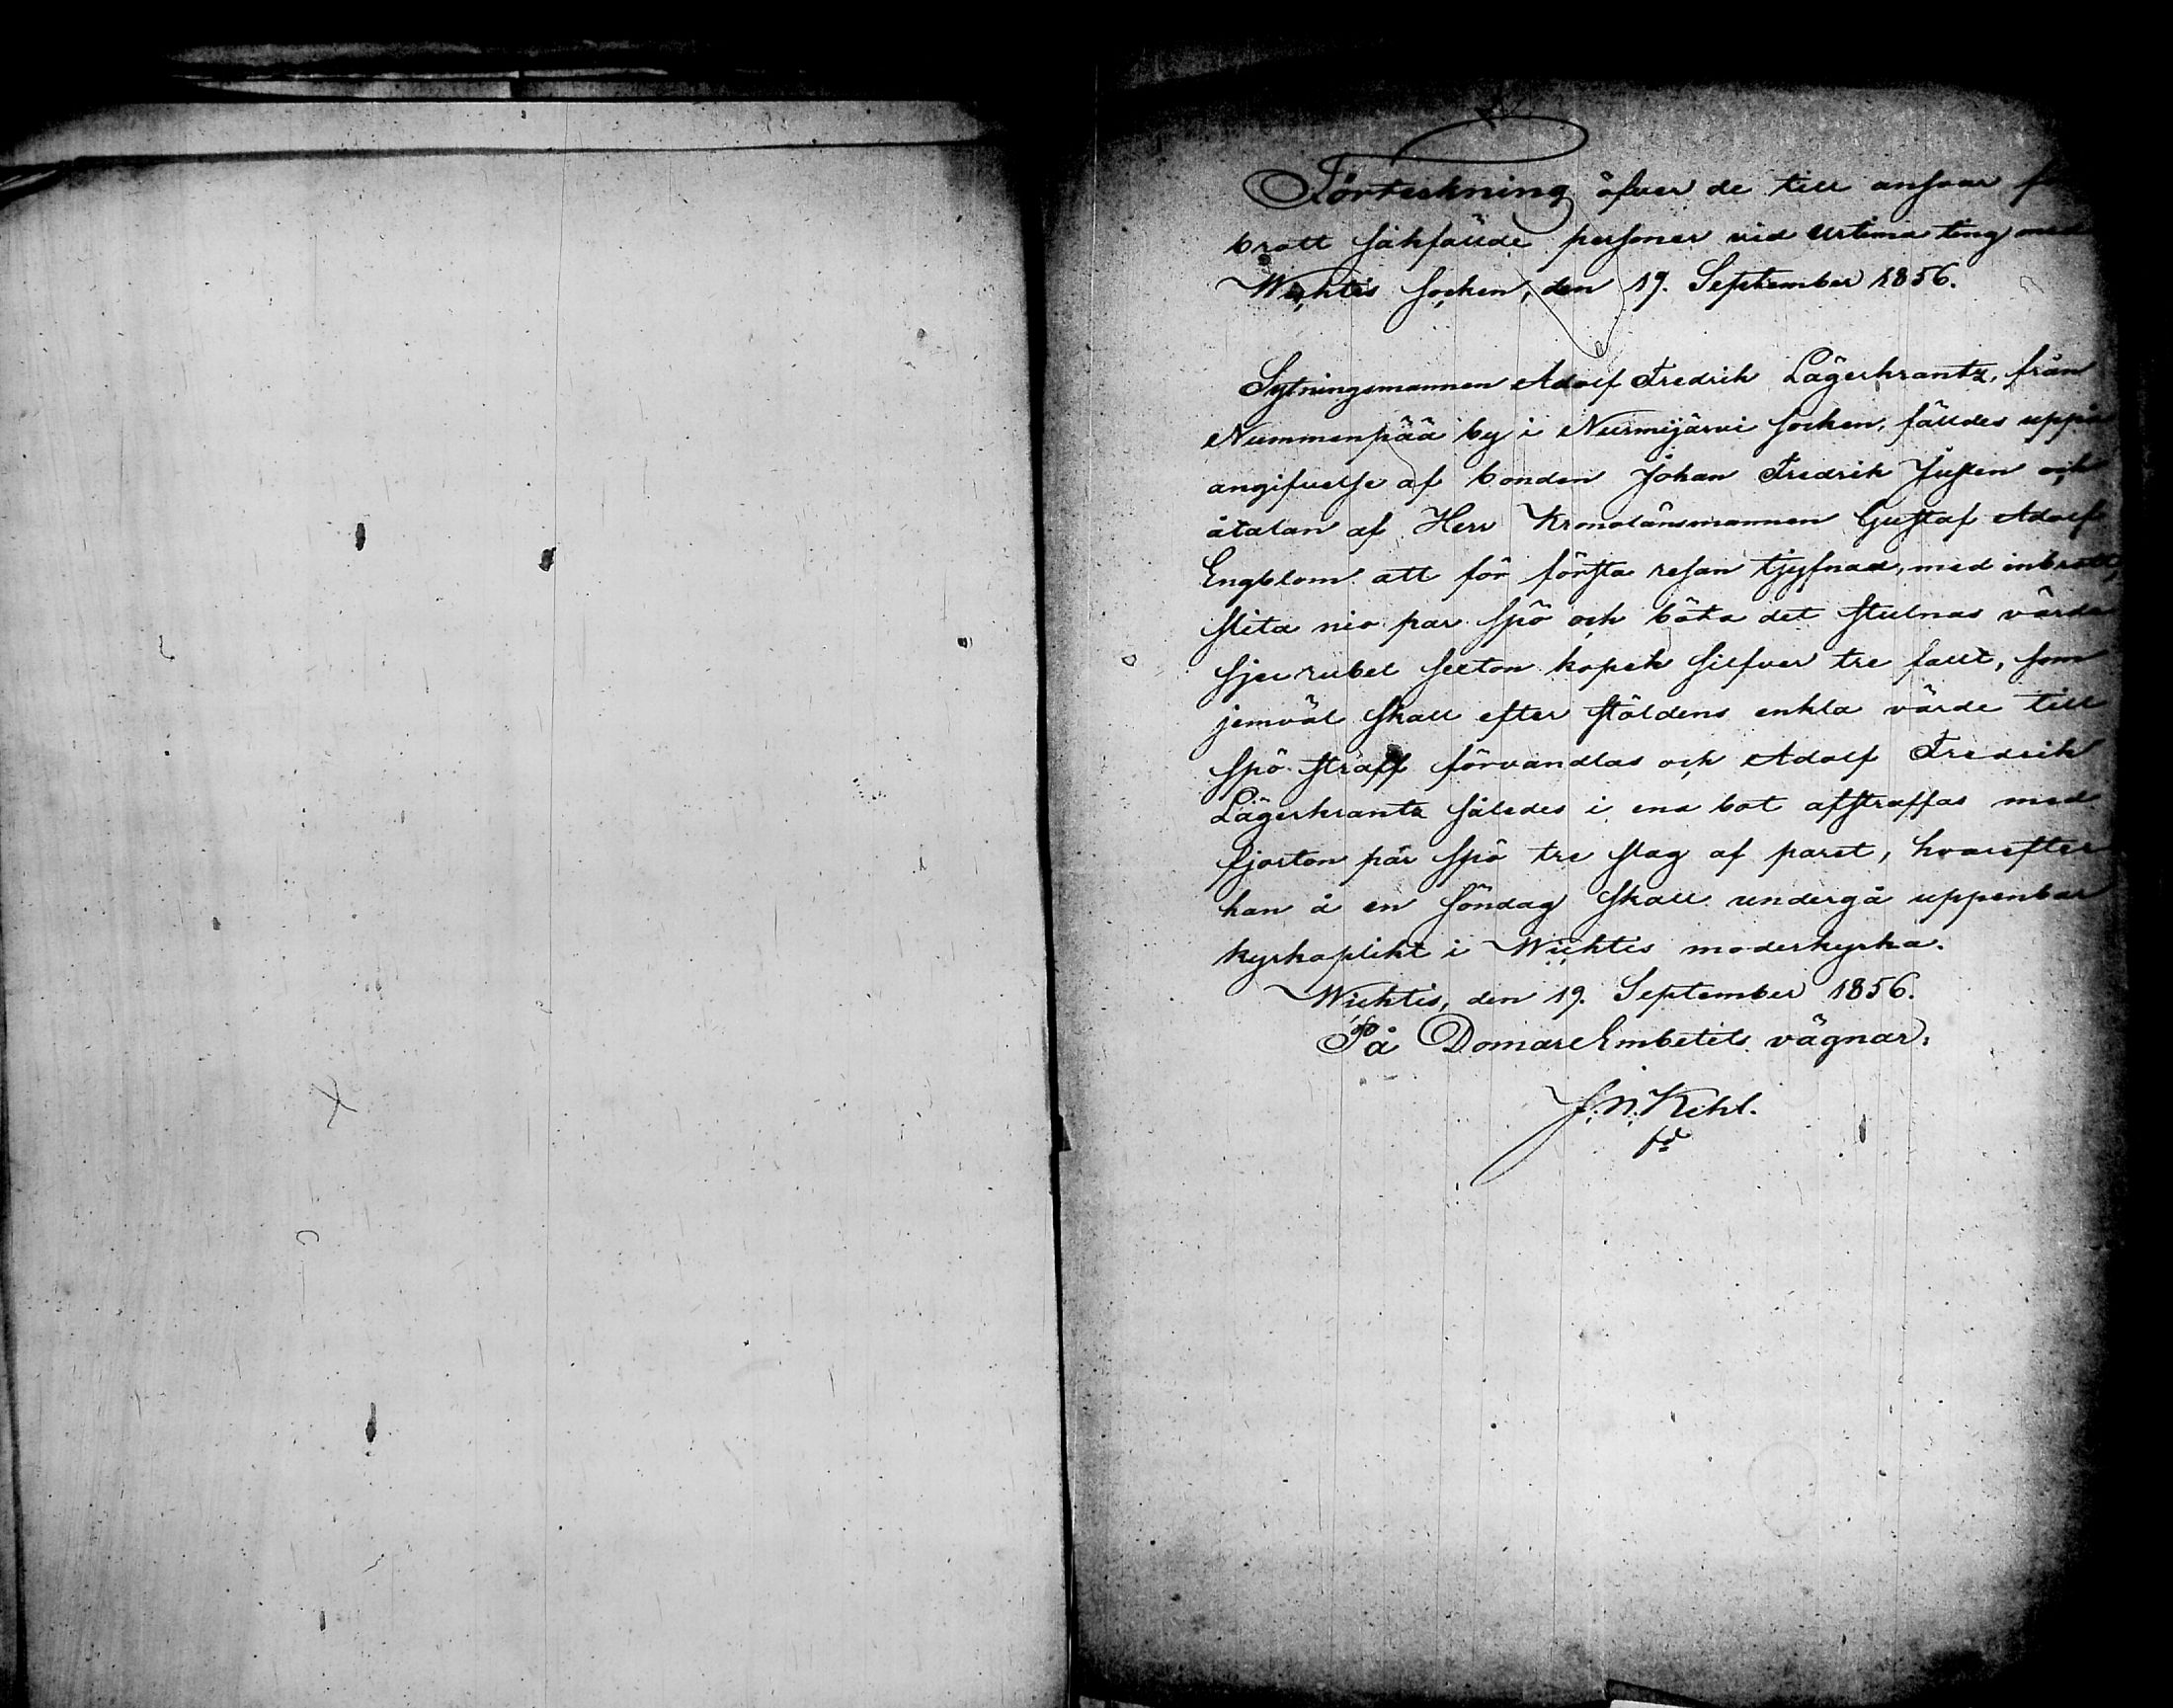 Förteckning öfver de till ansvar för
brott sakfällde personer vid Urtima ting med
Wichtis socken, den 19. September 1856.
Sytningsmannen Adolf Fredrik Lägerkrantz, från
Nummenpää by i Nurmijärvi socken, fälldes uppå
angifvelse af bonden Johan Fredrik Jusfen och
åtalan af Herr Kronolänsmannen Gustaf Adolf
Engblom att för första resan tjyfnad, med inbrott,
slita nio par spö och böta det stulnas värde
sju rubel sexton kopek silfver tre fallt, som
jemväl skall efter stöldens enkla värde till
spö straff förvandlas och Adolf Fredrik
Lägerkrantz således i ena bot afstraffas med
fjorton par spö tre slag af paret, hvarefter
han å en Söndag skall undergå uppenbar
kyrkoplikt i Wichtis moderkyrka.
Wichtis, den 19. September 1856.
På DomareEmbetets vägnar:
J. N. Kihl.